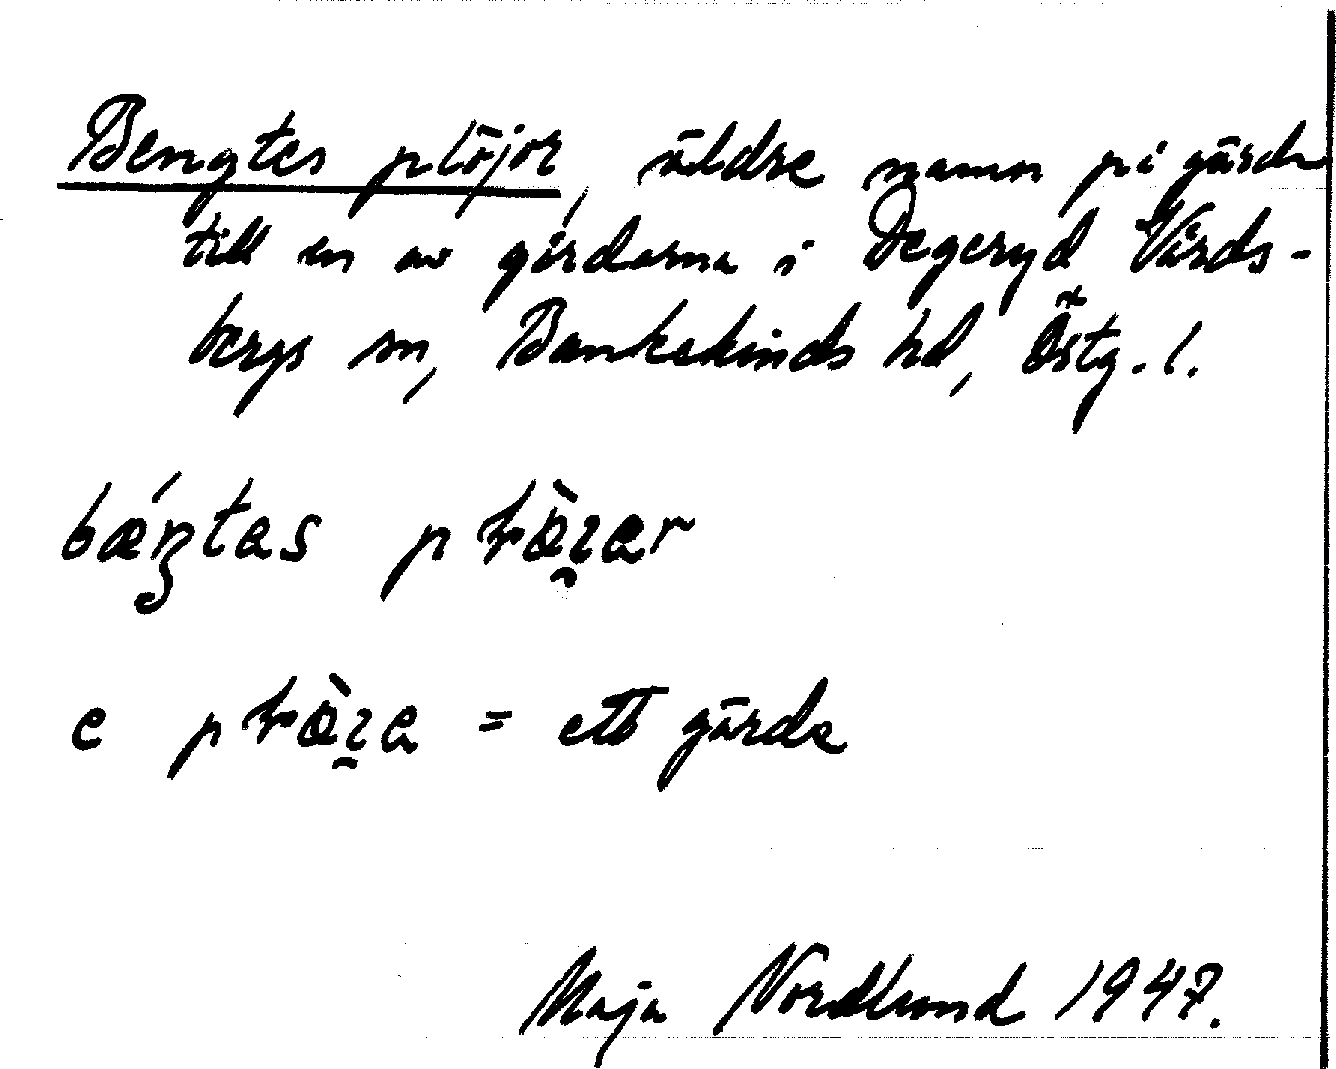 Bengtes plöjor, äldre namn på gärde
till en av gårdarna i Degeryd Vårds-
bergs sn, Bankekinds hd, Östg. l.
bæŋtas
e = ett gärde
Maja Nordlund 1947.